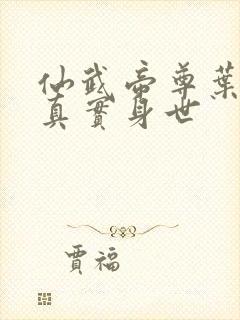 仙武帝尊葉
真實身世
賈福